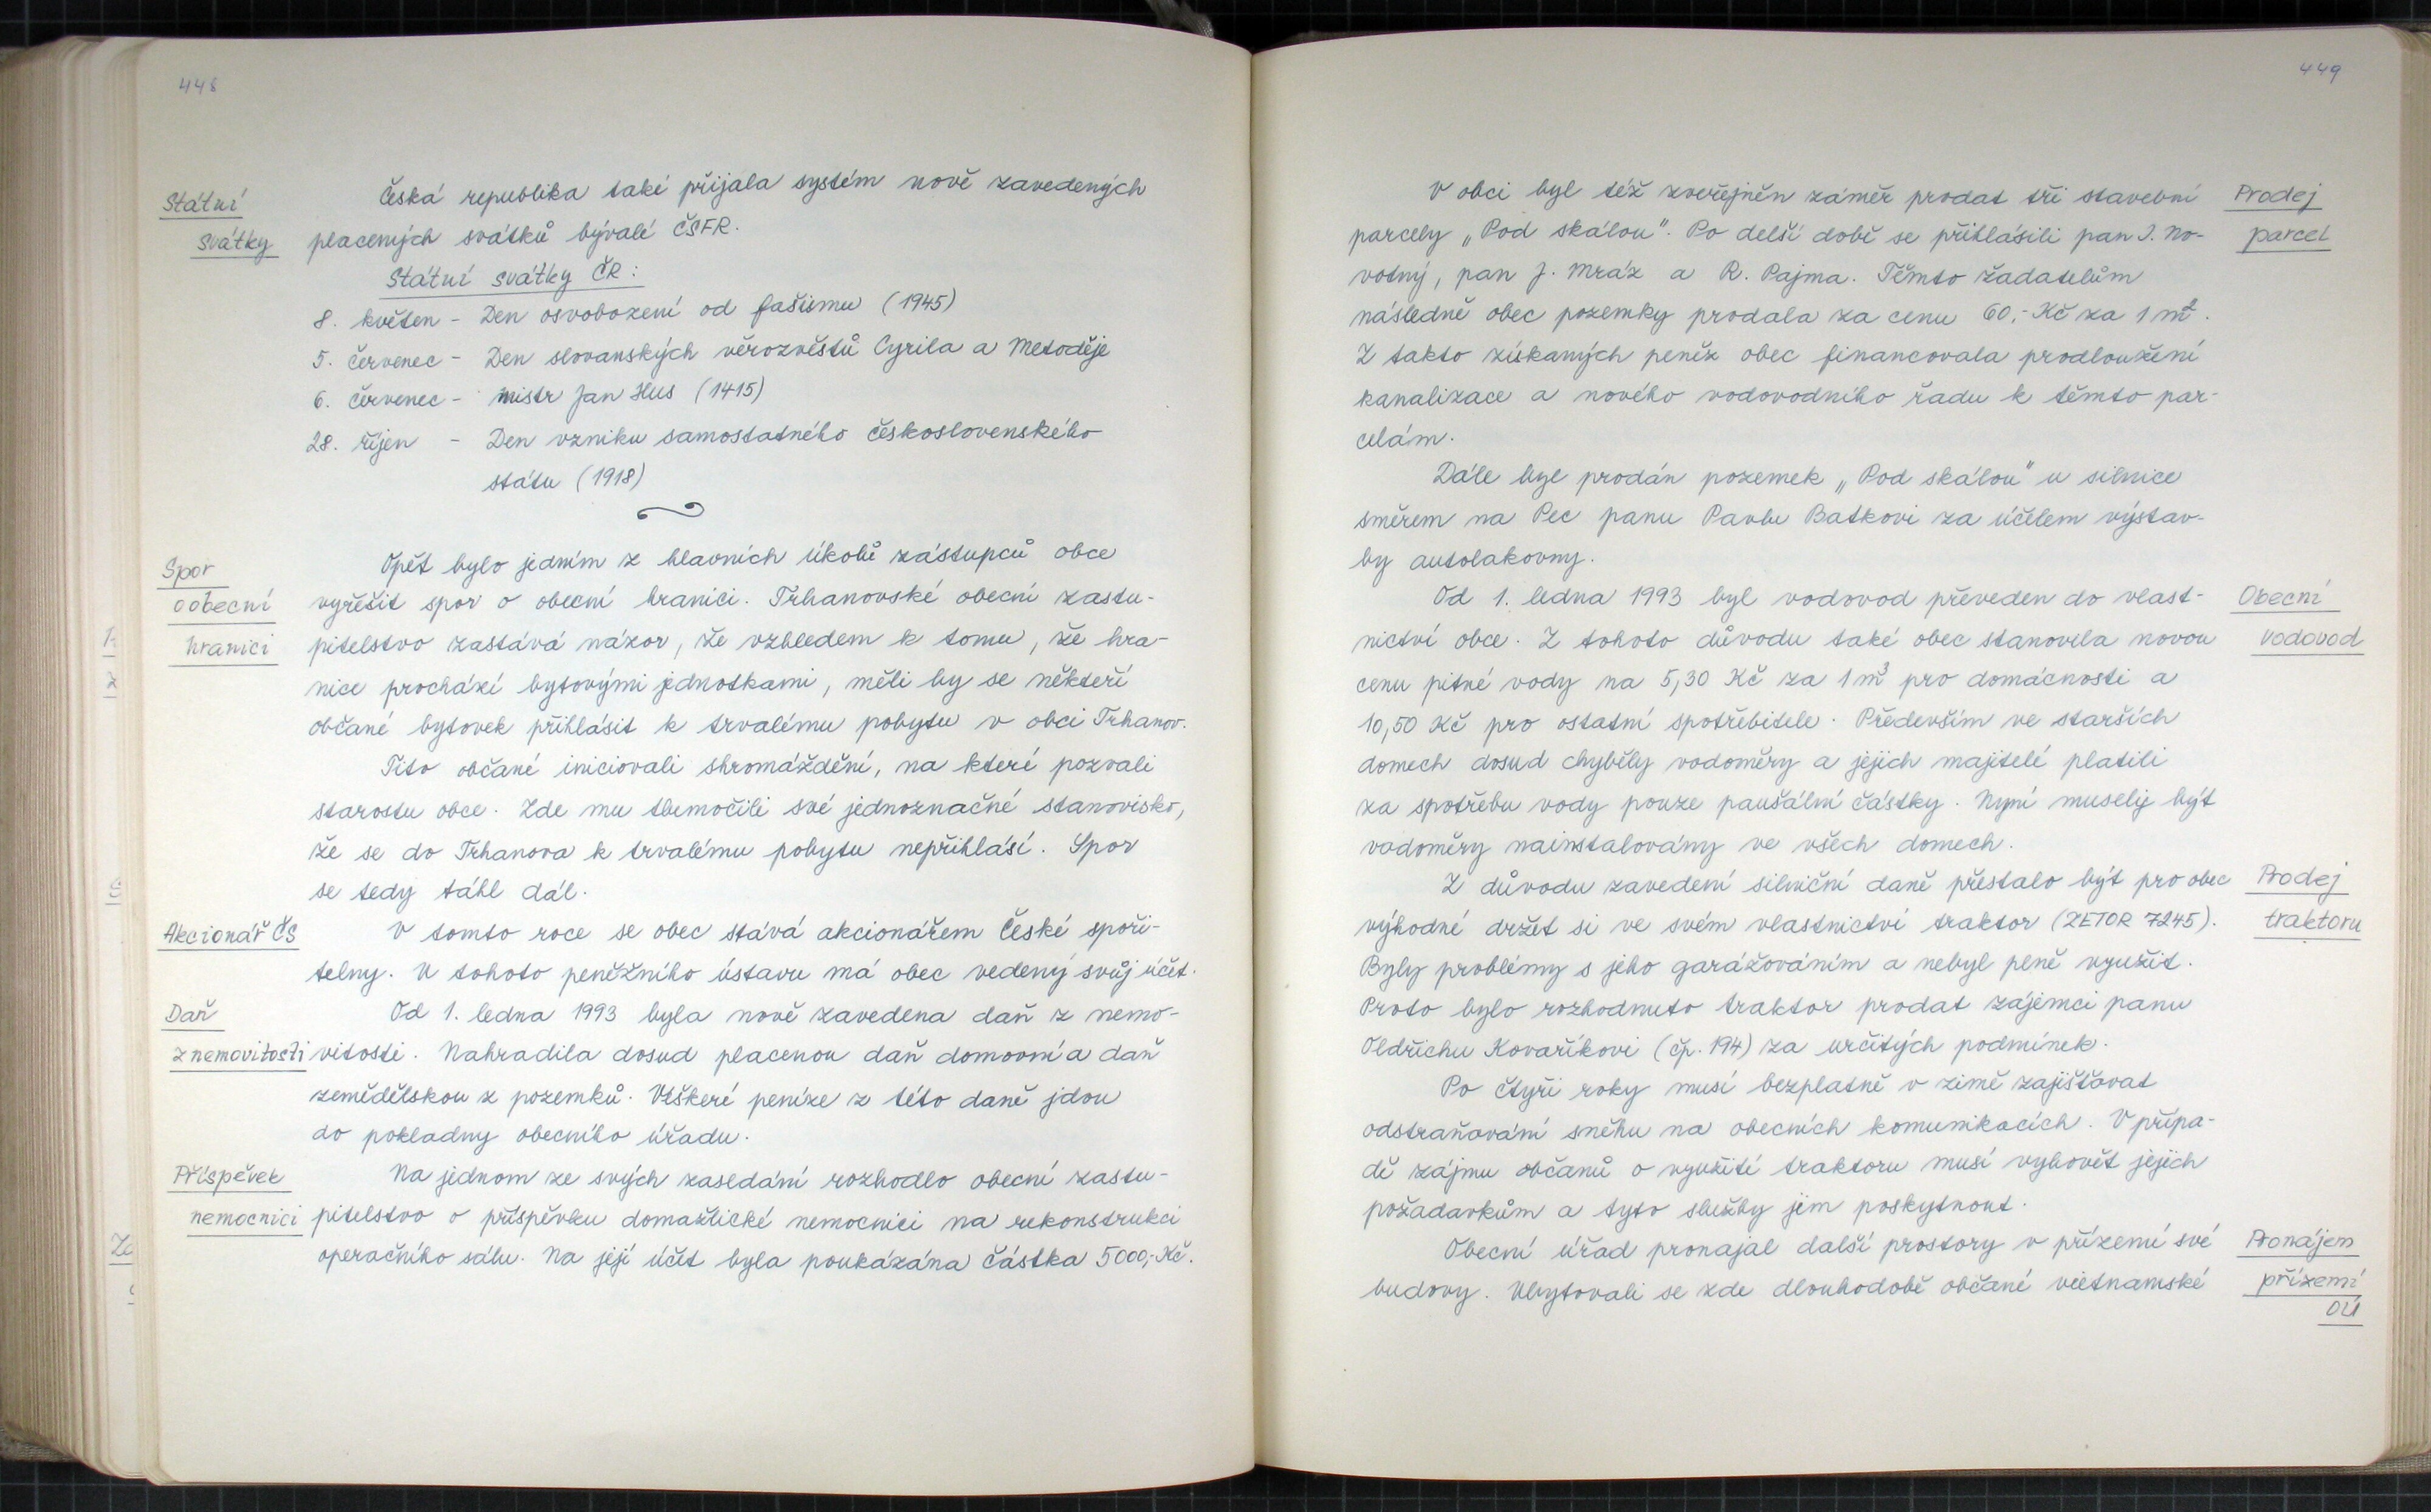 448
Státní
svátky
Česká republika také přijala systém nově zavedených
placených svátků bývalé ČSFR.
Státní svátky ČR:
8. květen - Den osvobození od fašismu (1945)
5. červenec - Den slovanských věrozvěstů Cyrila a Metoděje
6. červenec - mistr Jan Hus (1415)
28. říjen - Den vzniku samostatného československého
státu (1918)
Spor
o obecní
hranici
Opět bylo jedním z hlavních úkolů zástupců obce
vyřešit spor o obecní hranici. Trhanovské obecní zastu-
pitelstvo zastává názor, že vzhledem k tomu, že hra-
nice prochází bytovými jednotkami, měli by se někteří
občané bytovek přihlásit k trvalému pobytu v obci Trhanov.
Tito občané iniciovali shromáždění, na které pozvali
starostu obce. Zde mu tlumočili své jednoznačné stanovisko,
že se do Trhanova k trvalému pobytu nepřihlásí. Spor
se tedy táhl dál.
Akcionář ČS
V tomto roce se obec stává akcionářem České spoři-
telny. U tohoto peněžního ústavu má obec vedený svůj účet.
Daň
z nemovitosti
Od 1. ledna 1993 byla nově zavedena daň z nemo-
vitosti. Nahradila dosud placenou daň domovní a daň
zemědělskou z pozemků. Veškeré peníze z této daně jdou
do pokladny obecního úřadu.
Příspěvek
nemocnici
Na jednom ze svých zasedání rozhodlo obecní zastu-
pitelstvo o příspěvku domažlické nemocnici na rekonstrukci
operačního sálu. Na její účet byla poukázána částka 5000,-Kč.
449
V obci byl též zveřejněn záměr prodat tři stavební
parcely „Pod skálou". Po delší době se přihlásili pan J. No-
votný, pan J. Mráz a R. Pajma. Těmto žadatelům
následně obec pozemky prodala za cenu 60,- Kč za 1 m².
Z takto získaných peněz obec financovala prodloužení
kanalizace a nového vodovodního řadu k těmto par-
celám.
Prodej
parcel
Dále byl prodán pozemek „Pod skálou" u silnice
směrem na Pec panu Pavlu Batkovi za účelem výstav-
by autolakovny.
Od 1. ledna 1993 byl vodovod převeden do vlast-
nictví obce. Z tohoto důvodu také obec stanovila novou
cenu pitné vody na 5,30 Kč za 1 m³ pro domácnosti a
10,50 Kč pro ostatní spotřebitele. Především ve starších
domech dosud chyběly vodoměry a jejich majitelé platili
za spotřebu vody pouze paušální částky. Nyní musely být
vodoměry nainstalovány ve všech domech.
Obecní
vodovod
Z důvodu zavedení silniční daně přestalo být pro obec
výhodné držet si ve svém vlastnictví traktor (ZETOR 7245).
Byly problémy s jeho garážováním a nebyl plně využit.
Proto bylo rozhodnuto traktor prodat zájemci panu
Oldřichu Kovaříkovi (čp. 194) za určitých podmínek.
Prodej
traktoru
Po čtyři roky musí bezplatně v zimě zajišťovat
odstraňování sněhu na obecních komunikacích. V přípa-
dě zájmu občanů o využití traktoru musí vyhovět jejich
požadavkům a tyto služby jim poskytnout.
Obecní úřad pronajal další prostory v přízemí své
budovy. Ubytovali se zde dlouhodobě občané vietnamské
Pronájem
přízemí
OÚ